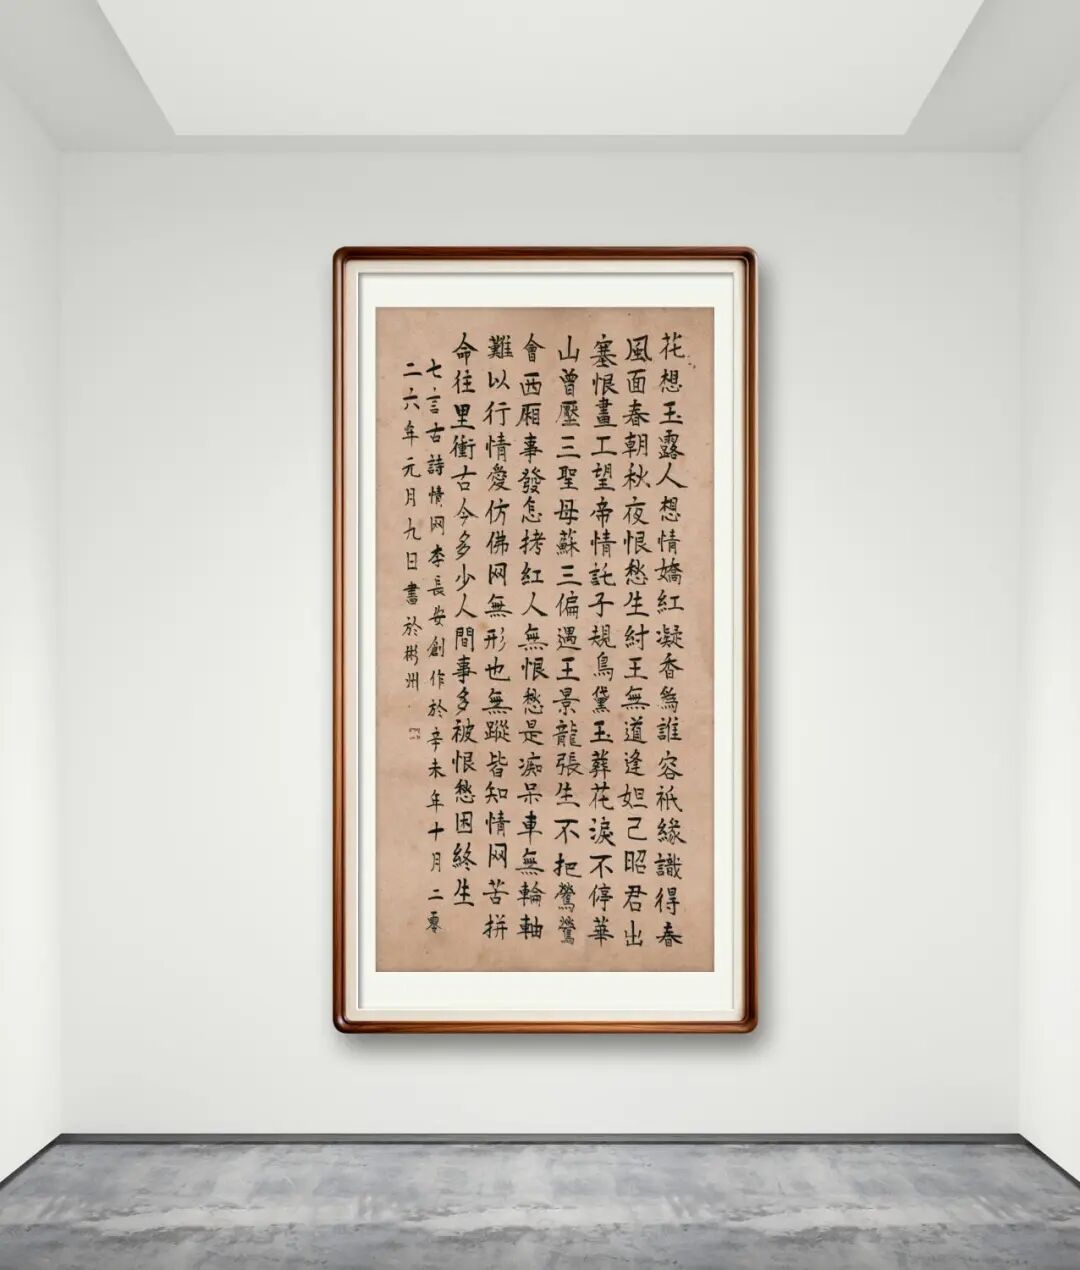 花想玉露人想情嬌紅凝香為誰容祇緣識得春
風面春朝秋夜恨愁生紂王無道逢妲己昭君出
塞恨畫工望帝情託子規鳥黛玉葬花淚不停華
山曾壓三聖母蘇三偏遇王景龍張生不把鶯鶯
會西厢事發怎拷紅人無恨愁是痴呆車無輪軸
難以行情愛仿佛网無形也無蹤皆知情网苦拼
命往里衝古今多少人間事多被恨愁困終生
七言古詩情网李長安創作於辛未年十月二零
二六年元月九日書於彬州